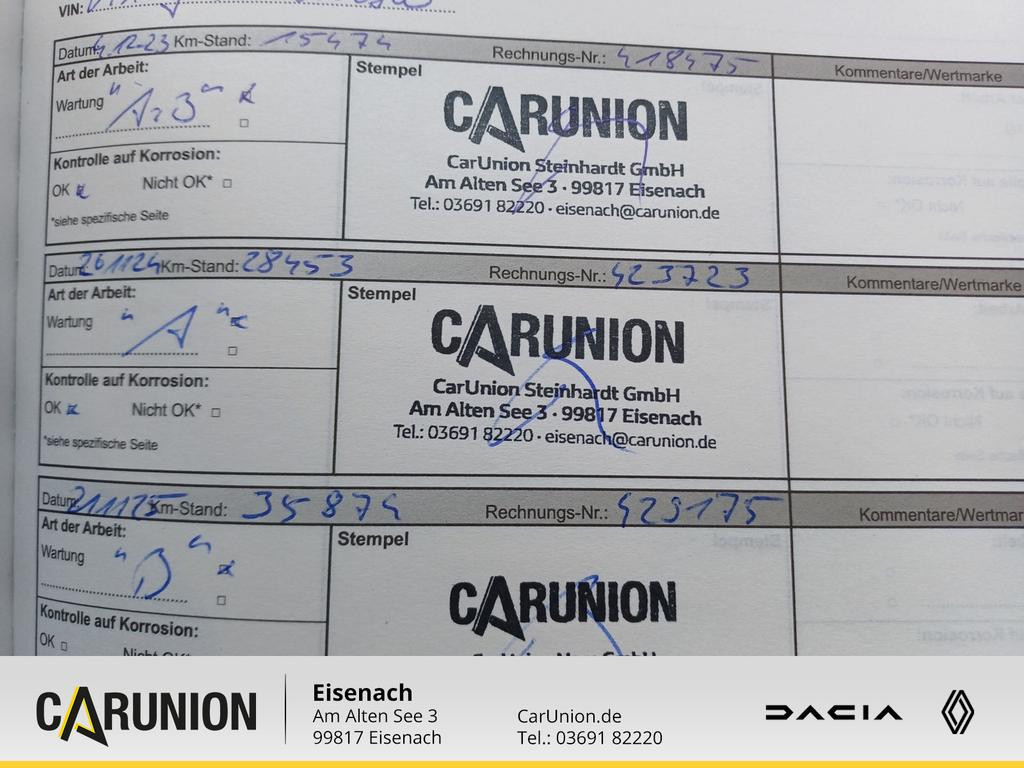 VIN:
Datum: 4.12.23 Km-Stand: 15474 Rechnungs-Nr.: 418475 Kommentare/Wertmarke
Art der Arbeit:
Stempel
Wartung "A+B"
CARUNION
CarUnion Steinhardt GmbH
Am Alten See 3 · 99817 Eisenach
Tel.: 03691 82220 · eisenach@carunion.de
Kontrolle auf Korrosion:
OK Nicht OK*
*siehe spezifische Seite
Datum: 261124 Km-Stand: 28453 Rechnungs-Nr.: 423723 Kommentare/Wertmarke
Art der Arbeit:
Stempel
Wartung "A"
CARUNION
CarUnion Steinhardt GmbH
Am Alten See 3 · 99817 Eisenach
Tel.: 03691 82220 · eisenach@carunion.de
Kontrolle auf Korrosion:
OK Nicht OK*
*siehe spezifische Seite
Datum: 211125 Km-Stand: 35874 Rechnungs-Nr.: 429175 Kommentare/Wertmar
Art der Arbeit:
Stempel
Wartung "B"
CARUNION
Kontrolle auf Korrosion:
OK
CARUNION
Eisenach
Am Alten See 3
99817 Eisenach
CarUnion.de
Tel.: 03691 82220
DACIA